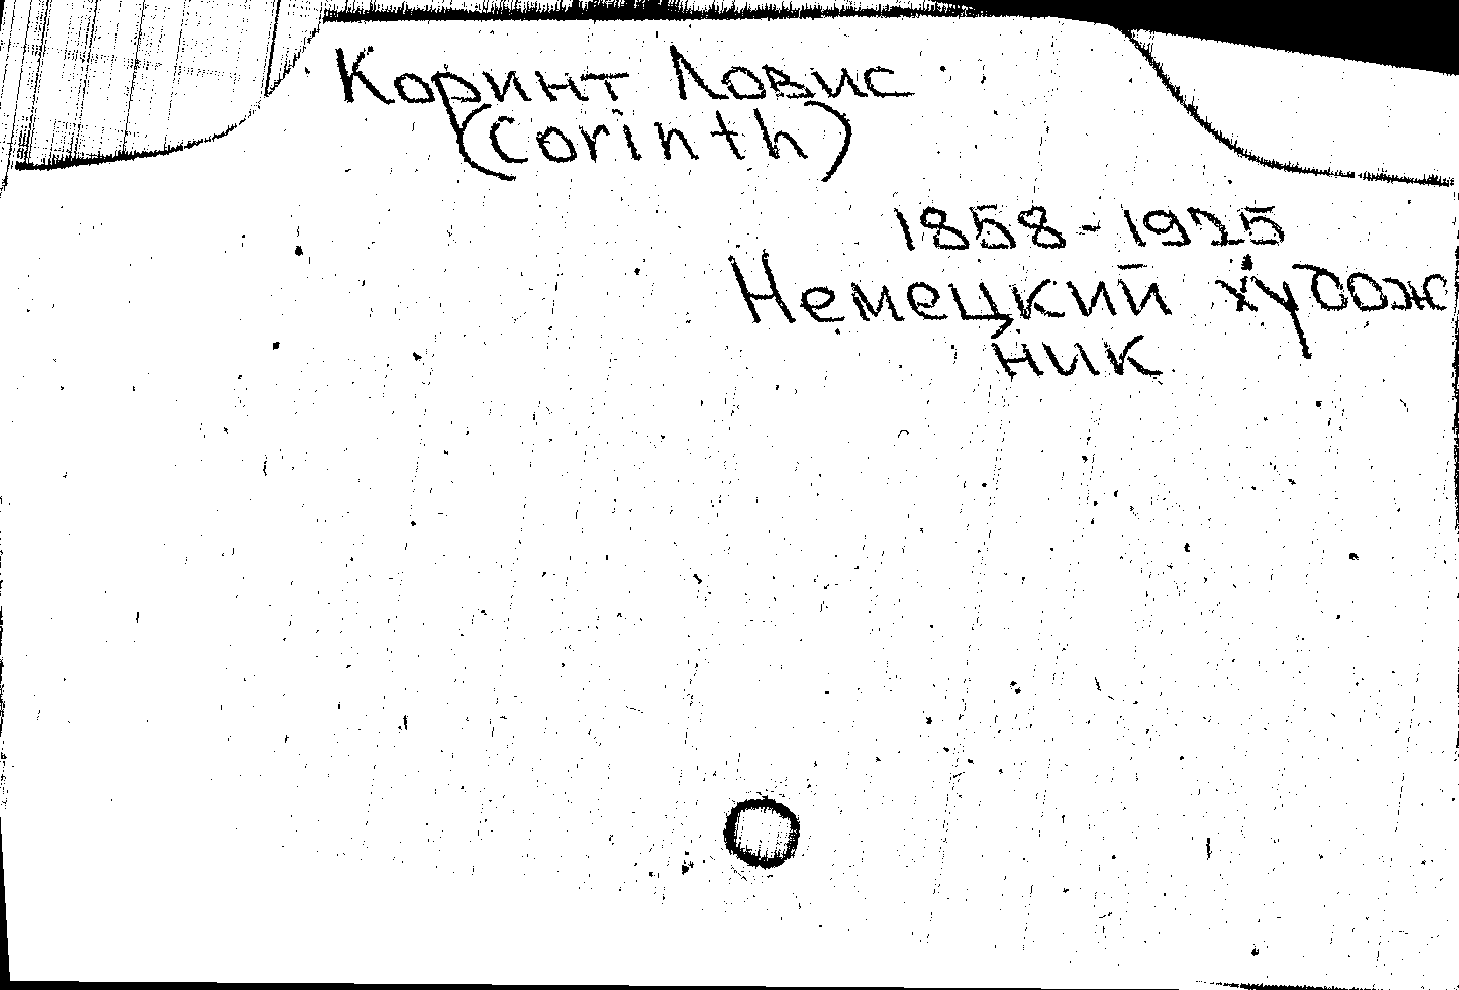 Коринт Ловис
(Corinth)
1858-1925
Немецкий худож
ник